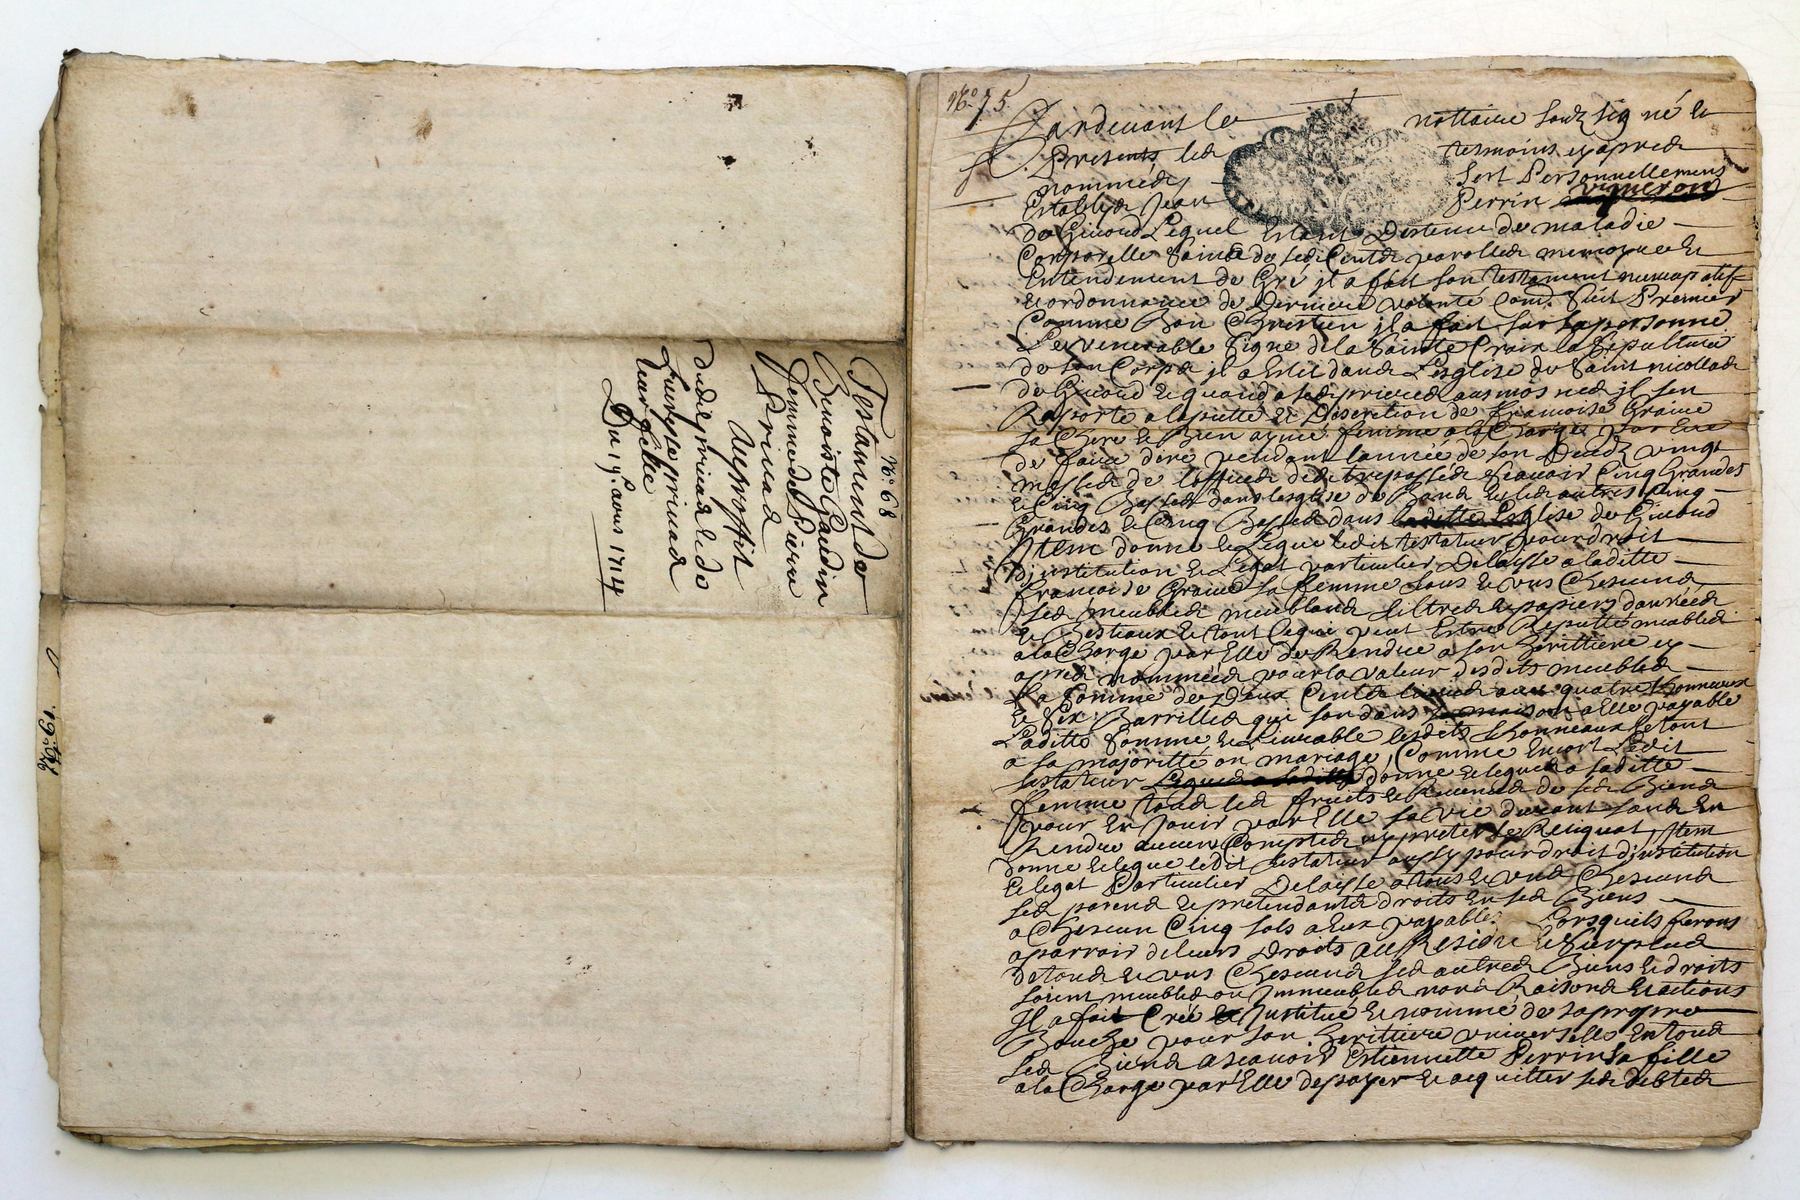 N.° 68
Testament de
Benoiste Gaudin
femme de Pierre
Privad
Au proffit
dudit privad et de
privad
leur fille
Du 19.e aoust 1714
N.° 75.
Pardevant le nottaire soubz signé et
Presents les tesmoins cy apres
nommés, fert Personnellement
Estably Jean Perrin vigneron
de Givord Lequel estant Destenu de maladie
Corporelle Sain de ses Cents parolles memoyre et
Entendement de Gré jl a fait son testement nuncupatif
et ordonnance de Derniere volonté Com.e Suit Premier
Comme Bon Chrestien jl a fait sur sa personne
Le venerable Signe de la Sainte Croix la Sepulture
de son Corps jl a Eslit dans L'esglise de Saint nicollas
de Givord et quand a ses prieres aumosnes jl sen
Raporte a la piette et Discretion de Francoise Graine
sa Chere et Bien aymée femme a la Charge par Elle
de faire dire pendant l'année de son Deudz vingt
messes de l'office des trepassés scavoir Cinq Grandes
et Cinq Basses dans l'esglise de et les autres Cinq
Grandes et Cinq Basses dans laditte Esglise de Givord
Jtem donne et Legue ledit testateur pour droit
d'jnstitution et Legat particulier Delaisse a laditte
Francoise Graine sa femme tous et uns Chescuns
ses meubles meublans tiltres et papiers danrées
et Bestiaux et tout Ceque peut Estre Reputté meubles
a la Charge par Elle de Rendre a son heritiere cy
apres nommées pour la valeur desdits meubles
La Somme de Deux Cents livres avec quatre thonneaux
et Six Barrilles qui son dans sa maison a Elle payable
Laditte Somme et Livrable lesdits thonneaux le tout
a sa majoritté ou mariage, Comme Encort Ledit
testateur Legue a laditte donne et legue a laditte
femme tous les fruits et Revenus de ses Biens
pour En Jouir par Elle sa vie durant sans En
Rendre aucuns Comptes ny preter le Reliquat Jtem
donne et legue ledit testateur aussy pour droit d'jnstitution
et legat Particulier Delaisse a tous et uns Chescuns
ses parens et pretendants droits En ses Biens
a Chescun Cinq sols a Eux payables Lorsquils feront
aparroir de leurs Droits au Residu et Surplus
de tous et uns Chescuns ses autres Biens et droits
soient meubles ou Jmmeubles noms Raisons et actions
Jl a fait Créé et Justitué et nommé de sa propre
Bouche pour son heritiere universelle En tous
ses Biens ascavoir Estiennette Perrin sa fille
a la Charge par Elle de payer et acquitter ses debtes